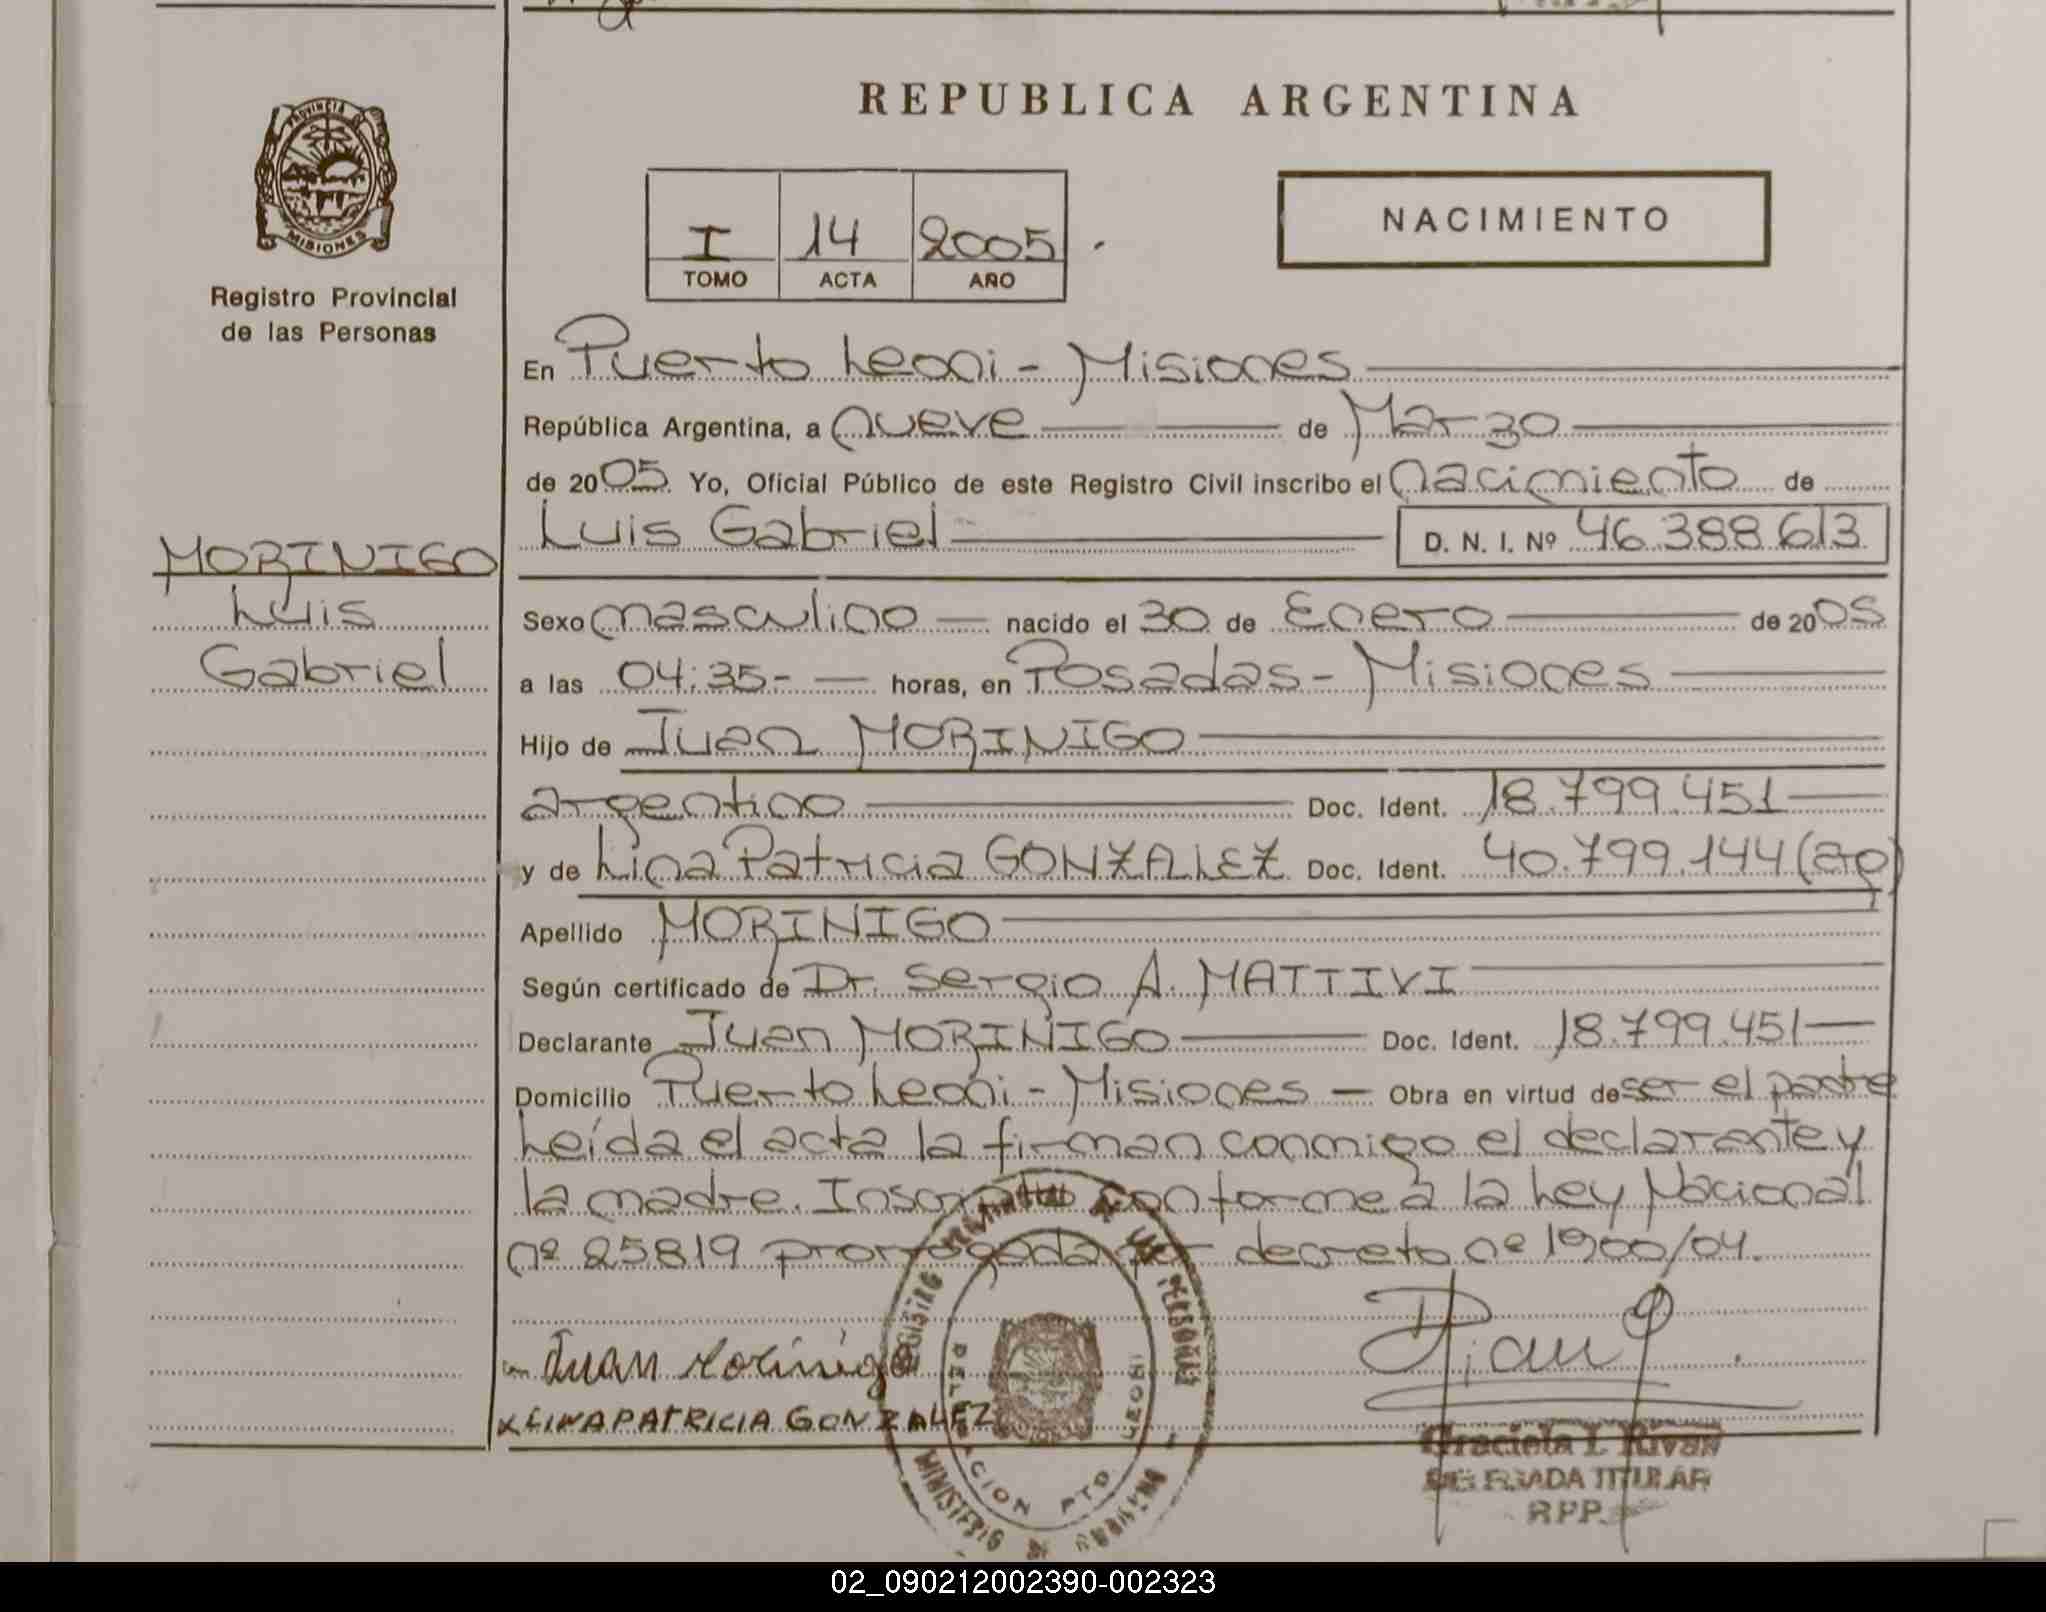 REPUBLICA ARGENTINA
PROVINCIA DE
MISIONES
Registro Provincial
de las Personas
I 14 2005
TOMO ACTA AÑO
NACIMIENTO
En Puerto Leoni - Misiones
República Argentina, a nueve de Marzo
de 2005 Yo, Oficial Público de este Registro Civil inscribo el nacimiento de
Luis Gabriel D. N. I. Nº 46.388.613
MORINIGO
Luis
Gabriel
Sexo masculino nacido el 30 de Enero de 2005
a las 04:35- horas, en Posadas - Misiones
Hijo de Juan MORINIGO
argentino Doc. Ident. 18.799.451
y de Lina Patricia GONZALEZ Doc. Ident. 40.799.144 (ag)
Apellido MORINIGO
Según certificado de Dr. Sergio A. MATTIVI
Declarante Juan MORINIGO Doc. Ident. 18.799.451
Domicilio Puerto Leoni - Misiones Obra en virtud de ser el padre
Leída el acta la firman conmigo el declarante y
la madre. Inscripto conforme a la Ley Nacional
nº 25819 prorrogada por decreto nº 1900/04.
Juan Morinigo
x LINA PATRICIA GONZALEZ
REGISTRO PROVINCIAL DE LAS PERSONAS
DELEGACION PTO. LEONI
MINISTERIO DE GOBIERNO
Graciela I. Rivas
DELEGADA TITULAR
RPP.
02_090212002390-002323